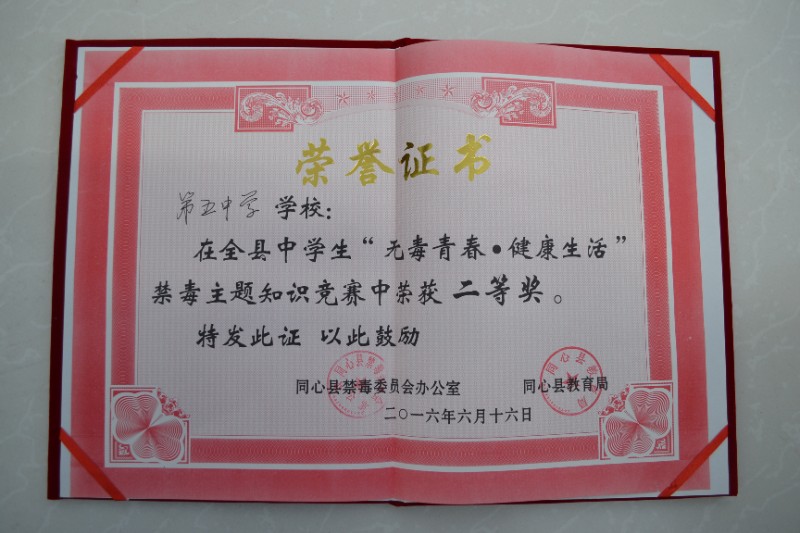 荣誉证书
第五中学 学校：
在全县中学生“无毒青春·健康生活”
禁毒主题知识竞赛中荣获 二等奖。
特发此证 以此鼓励
同心县禁毒委员会办公室 同心县教育局
二〇一六年六月十六日